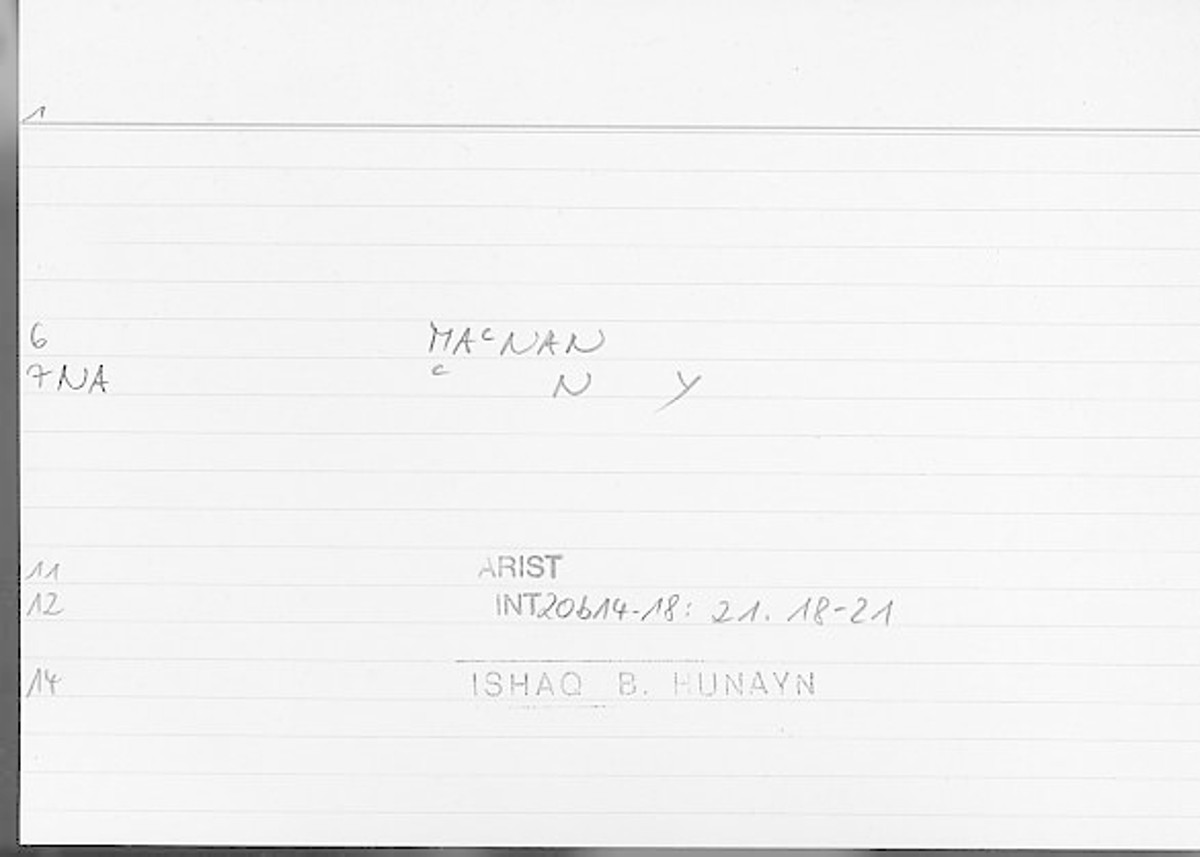 1
6 MAᶜNAN
7 NA ᶜ N Y
11 ARIST
12 INT20b14-18: 21. 18-21
14 ISHAQ B. HUNAYN